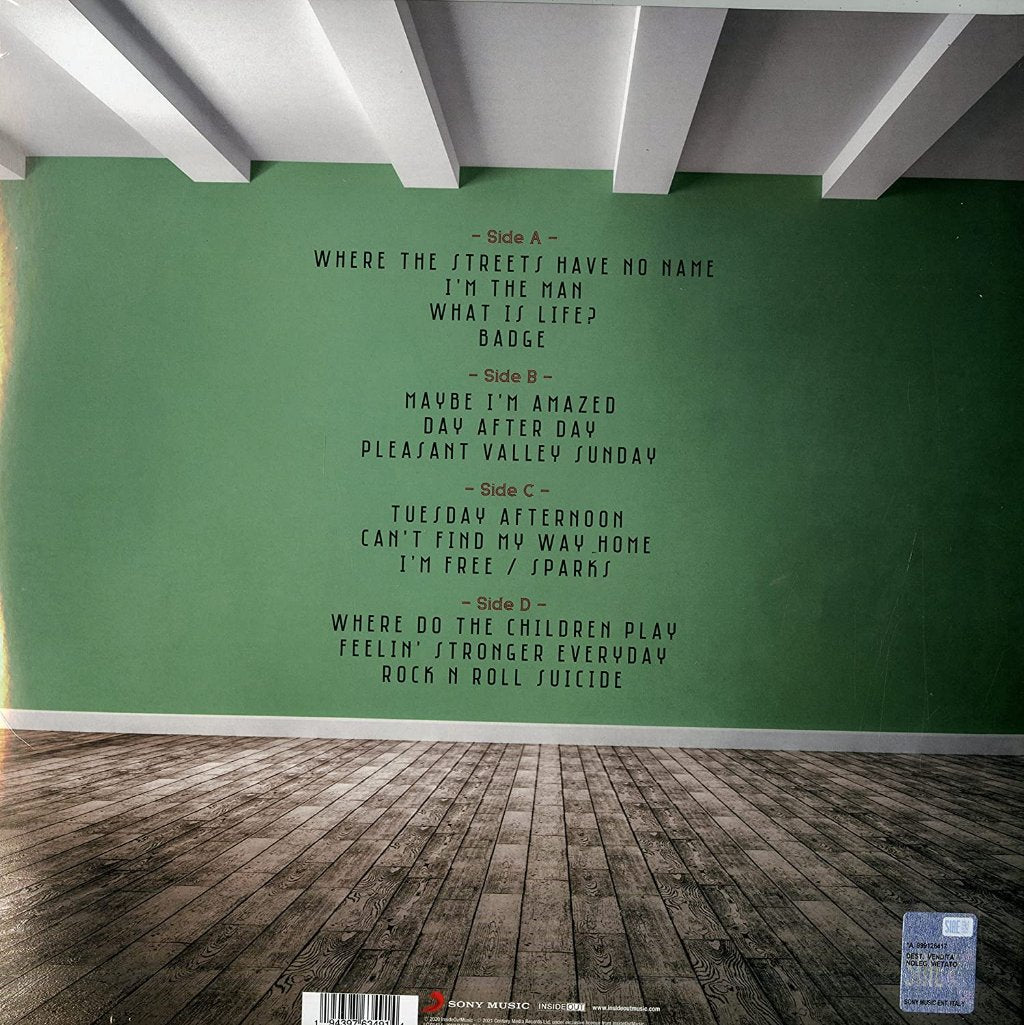 - Side A -
WHERE THE STREETS HAVE NO NAME
I'M THE MAN
WHAT IS LIFE?
BADGE
- Side B -
MAYBE I'M AMAZED
DAY AFTER DAY
PLEASANT VALLEY SUNDAY
- Side C -
TUESDAY AFTERNOON
CAN'T FIND MY WAY HOME
I'M FREE / SPARKS
- Side D -
WHERE DO THE CHILDREN PLAY
FEELIN' STRONGER EVERYDAY
ROCK N ROLL SUICIDE
DEST. VENDITA
NOLEG. VIETATO
SONY MUSIC ENT. ITALY
SONY MUSIC INSIDEOUT www.insideoutmusic.com
© 2020 InsideOutMusic